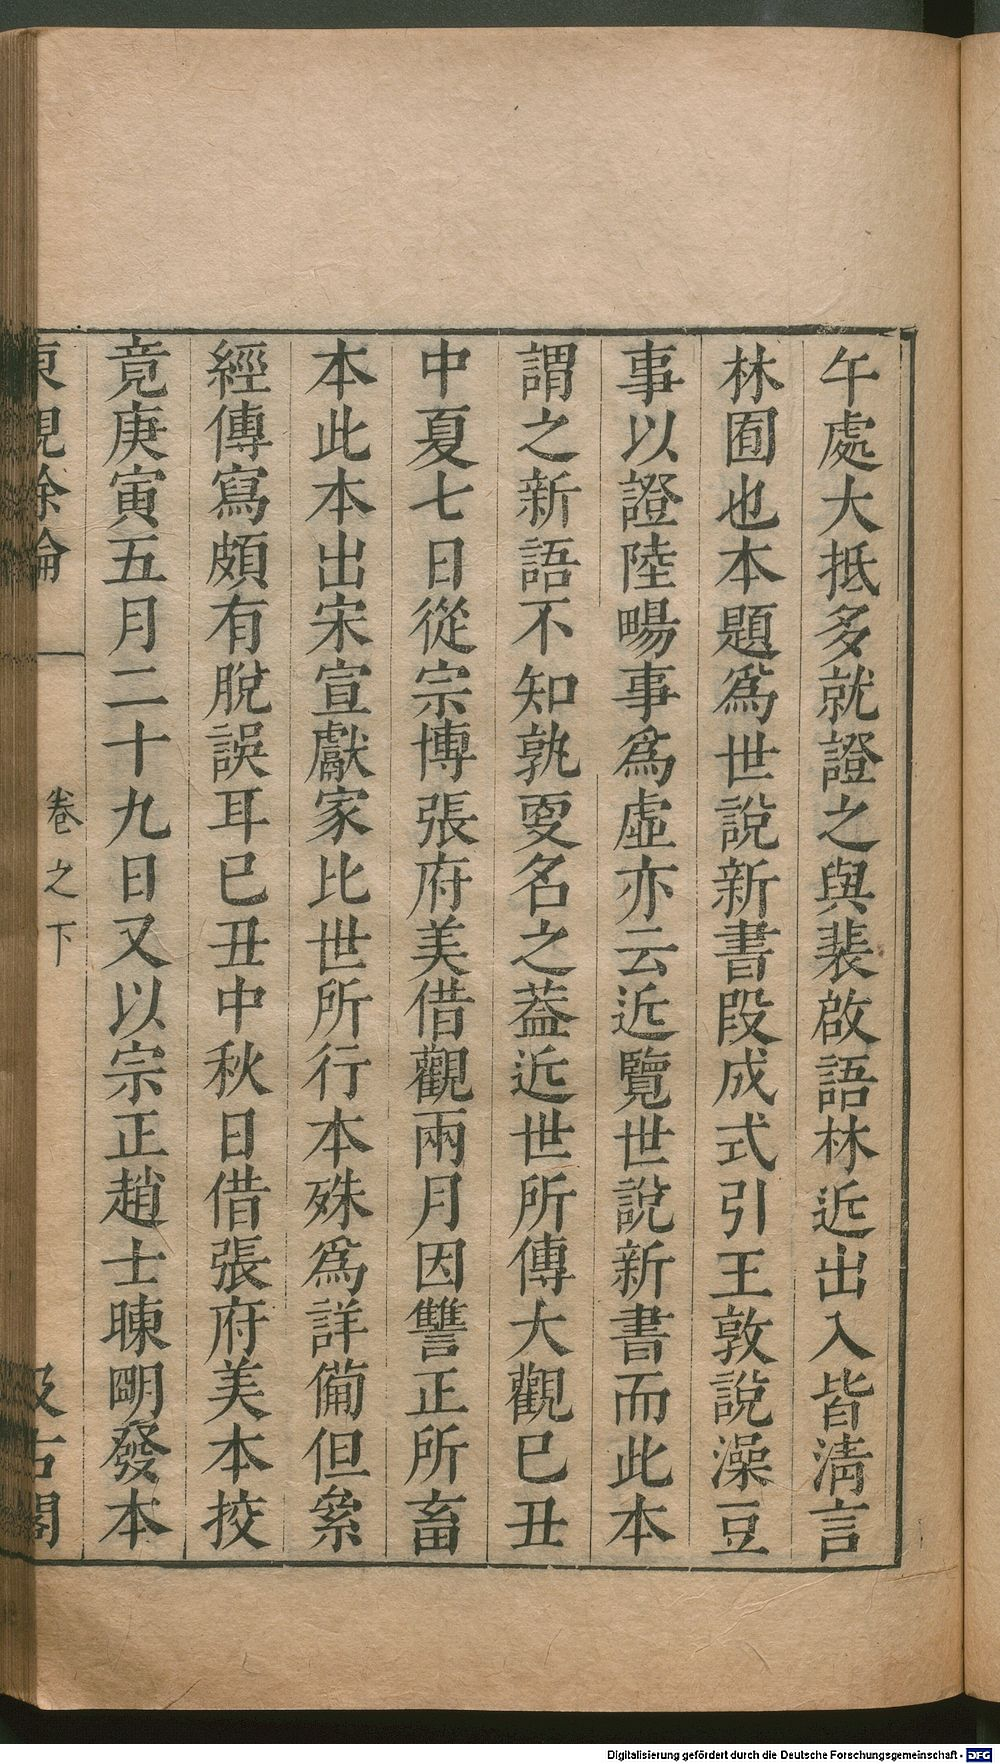 午處大抵多就證之與裴啟語林近出入皆淸言
林囿也本題爲世説新書段成式引王敦説澡豆
事以證陸暢事爲虛亦云近覽世説新書而此本
謂之新語不知孰更名之葢近世所傳大觀巳丑
中夏七日從宗博張府美借觀兩月因讐正所畜
本此本出宋宣獻家比世所行本殊爲詳備但絫
經傳寫頗有脫誤耳巳丑中秋日借張府美本挍
竟庚寅五月二十九日又以宗正趙士暕朙發本
東觀餘論
卷之下
汲古閣
Digitalisierung gefördert durch die Deutsche Forschungsgemeinschaft - DFG